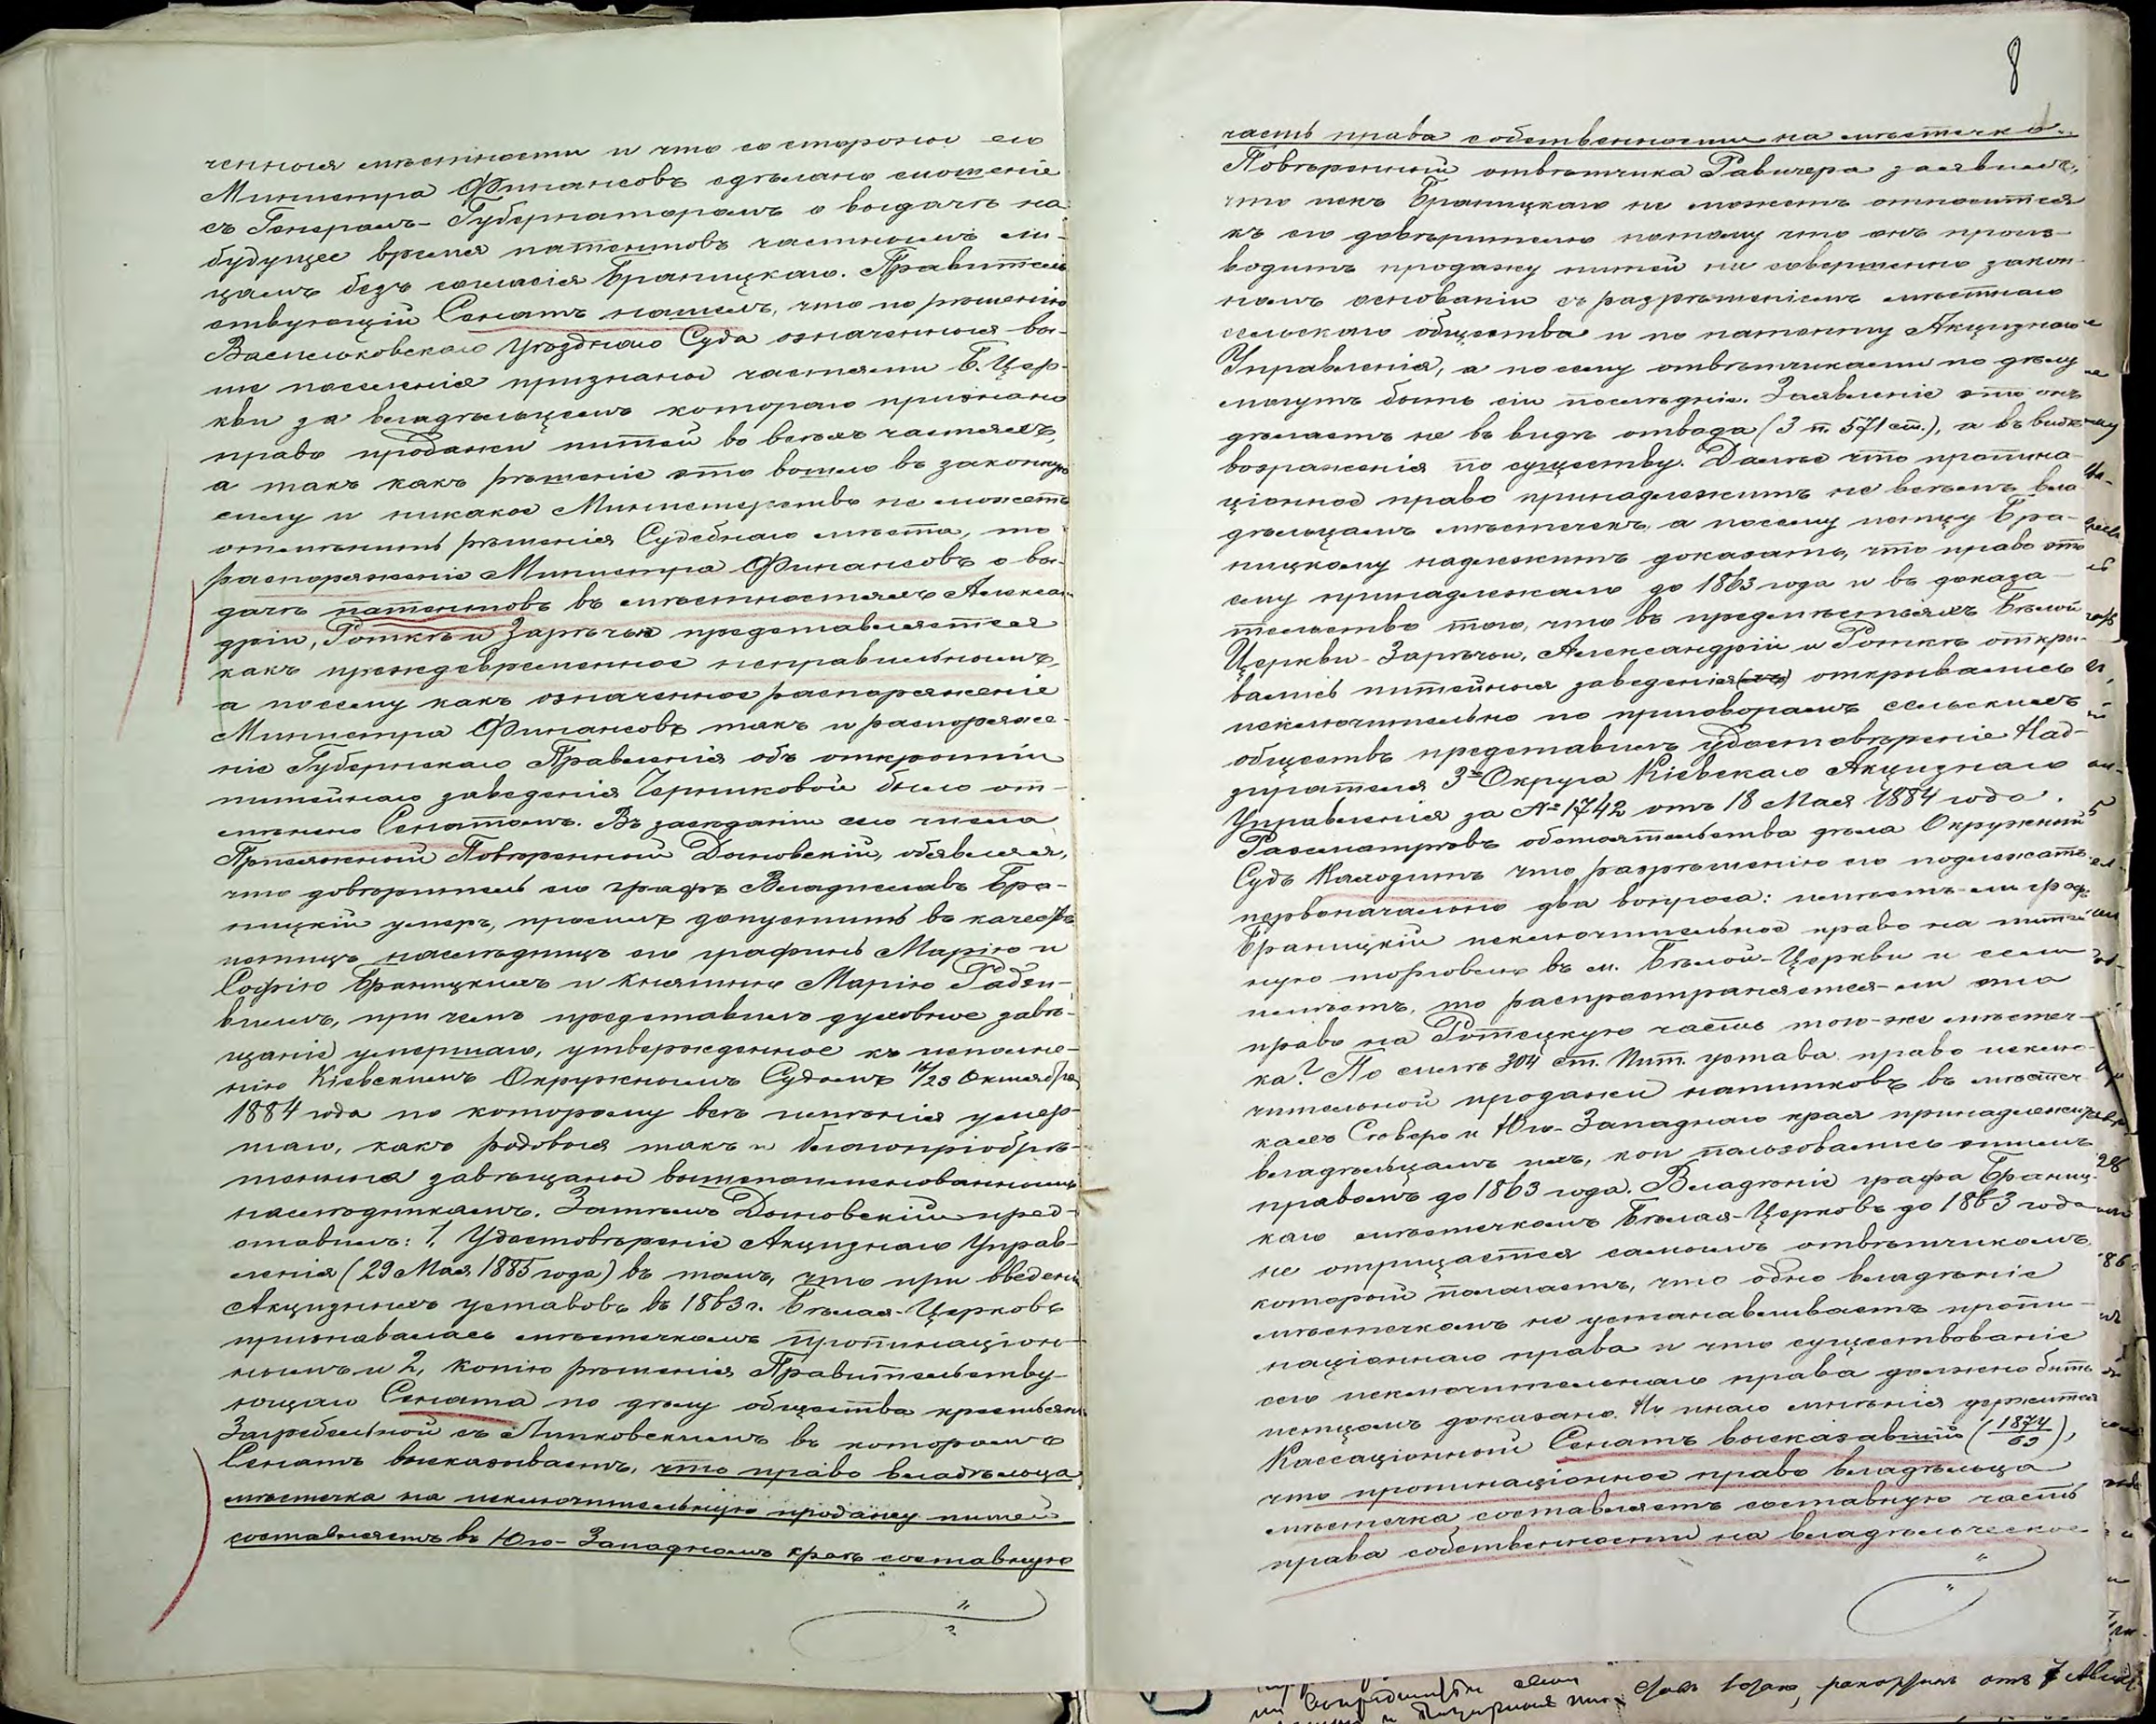 ченныя мѣстности и что со стороны его
Министра Финансовъ сдѣлано сношеніе
съ Генералъ-Губернаторомъ о выдачѣ на
будущее время патентовъ частнымъ ли-
цамъ безъ согласія Браницкаго. Правитель
ствующій Сенатъ нашелъ, что по рѣшенію
Васильковскаго Уѣзднаго Суда означенныя вы-
ше поселенія признаны частями Б. Цер-
кви за владѣльцемъ котораго признано
право продажи питей во всѣхъ частяхъ,
а такъ какъ рѣшеніе это вошло въ законную
силу и никакое Министерство не можетъ
отмѣнить рѣшенія Судебнаго мѣста, то
распоряженіе Министра Финансовъ о вы-
дачѣ патентовъ въ мѣстностяхъ Алексан-
дріи, Роткѣ и Зарѣчьи представляется
какъ преждевременное неправильнымъ,
а посему какъ означенное распоряженіе
Министра Финансовъ такъ и распоряже-
ніе Губернскаго Правленія объ открытіи
питейнаго заведенія Черниковой было от-
мѣнено Сенатомъ. Въ засѣданіи сего числа
Присяжный Повѣренный Дыновскій, объявляя,
что довѣритель его графъ Владиславъ Бра-
ницкій умеръ, просилъ допустить въ качествѣ
истицъ наслѣдницъ его графинь Марію и
Софію Браницкихъ и Княгиню Марію Радзи-
виллъ, при чемъ представилъ духовное завѣ-
щаніе умершаго, утвержденное къ исполне-
нію Кіевскимъ Окружнымъ Судомъ 16/23 Октября
1884 года по которому всѣ имѣнія умер-
шаго, какъ родовыя такъ и благопріобрѣ-
тенныя завѣщаны вышепоименованнымъ
наслѣдникамъ. Затѣмъ Дыновскій пред-
ставилъ: 1, Удостовѣреніе Акцизнаго Управ-
ленія (29 Мая 1885 года) въ томъ, что при введеніи
Акцизныхъ уставовъ въ 1863 г. Бѣлая-Церковь
признавалась мѣстечкомъ пропинаціон-
нымъ и 2, копію рѣшенія Правительству-
ющаго Сената по дѣлу общества крестьянъ
Загребельной съ Липковскимъ въ которомъ
Сенатъ высказываетъ, что право владѣльца
мѣстечка на исключительную продажу питей
составляетъ въ Юго-Западномъ краѣ составную
8
часть права собственности на мѣстечко.
Повѣренный отвѣтчика Равичера заявилъ,
что искъ Браницкаго не можетъ относиться
къ его довѣрителю потому что онъ произ-
водитъ продажу питей на совершенно закон-
номъ основаніи съ разрѣшеніемъ мѣстнаго
сельскаго общества и по патенту Акцизнаго
Управленія, а посему отвѣтчиками по дѣлу
могутъ быть сіи послѣдніе. Заявленіе это онъ
дѣлаетъ не въ видѣ отвода (3 п. 571 ст.), а въ видѣ
возраженія по существу. Далѣе что пропина-
ціонное право принадлежитъ не всѣмъ вла-
дѣльцамъ мѣстечекъ, а посему истцу Бра-
ницкому надлежитъ доказать, что право это
ему принадлежало до 1863 года и въ доказа-
тельство того, что въ предмѣстьяхъ Бѣлой
Церкви-Зарѣчьи, Александріи и Роткѣ откры-
вались питейныя заведенія открывались
исключительно по приговорамъ сельскихъ
обществъ представилъ Удостовѣреніе Над-
зирателя 3го Округа Кіевскаго Акцизнаго
Управленія за № 1742 отъ 18 Мая 1884 года.
Разсмотрѣвъ обстоятельства дѣла Окружный
Судъ Находитъ что разрѣшенію его подлежатъ
первоначально два вопроса: имѣетъ-ли графъ
Браницкій исключительное право на питей-
ную торговлю въ м. Бѣлой-Церкви и если
имѣетъ, то распространяется-ли это
право на Ротецкую часть того-же мѣстеч-
ка? По силѣ 304 ст. Пит. устава право исклю-
чительной продажи напитковъ въ мѣстеч-
кахъ Сѣверо и Юго-Западнаго края принадлежитъ
владѣльцамъ ихъ, кои пользовались этимъ
правомъ до 1863 года. Владѣніе графа Браниц-
каго мѣстечкомъ Бѣлая-Церковь до 1863 года
не отрицается самимъ отвѣтчикомъ
который полагаетъ, что одно владѣніе
мѣстечкомъ не устанавливаетъ пропи-
націоннаго права и что существованіе
сего исключительнаго права должно быть
истцомъ доказано. Но инаго мнѣнія держится
Кассаціонный Сенатъ высказавшій (1874/63),
что пропинаціонное право владѣльца
мѣстечка составляетъ составную часть
права собственности на владѣльческое